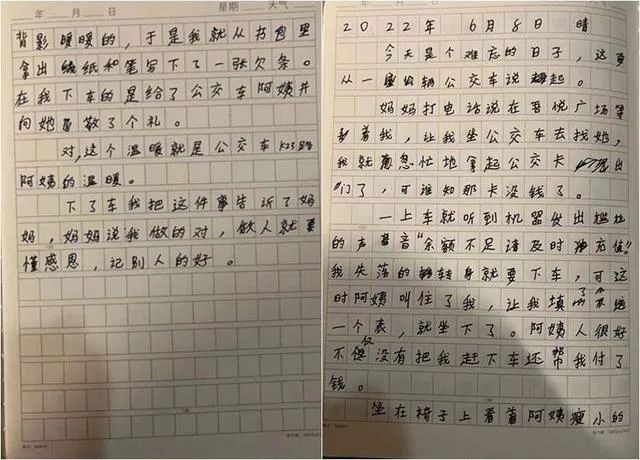 年 月 日 星期 天气
背影暖暖的，于是我就从书包里
拿出纸和笔写下了一张欠条。
在我下车的是给了公交车阿姨并
向她敬了个礼。
对，这个温暖就是公交车K25路
阿姨的温暖。
下了车我把这件事告诉了妈
妈，妈妈说我做的对，做人就要
懂感恩，记别人的好。
年 月 日 星期 天气
2022年 6月8日 晴
今天是个难忘的日子，这要
从一辆公交车说起。
妈妈打电话说在吾悦广场等
着我，让我坐公交车去找她，
我就忽忙地拿起公交卡出
门了，可谁知那卡没钱了。
一上车就听到机器发出尴尬
的声音“余额不足请及时充值!”
我失落的转身就要下车，可这
时阿姨叫住了我，让我填了
一个表，就坐下了。阿姨人很好
不仅没有把我赶下车还帮我付了
钱。
坐在椅子上看着阿姨瘦小的